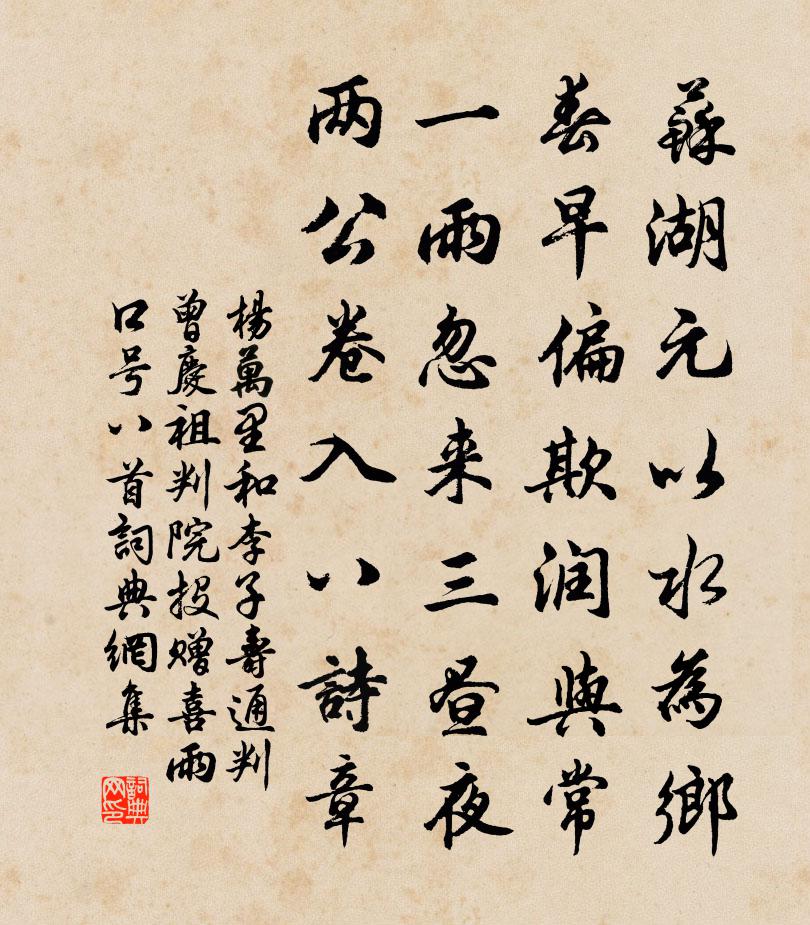 蘇湖元以水為鄉
春早偏欺润與常
一雨忽来三昼夜
两公卷入八詩章
楊萬里和李子壽通判
曾慶祖判院投赠喜雨
口号八首詞典網集
詞典网印